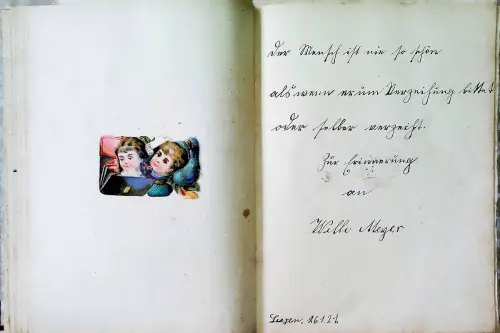 Der Mensch ist nie so schön
als wenn er um Verzeihung bittet
oder selber verzeiht.
Zur Erinnerung
an
Willi Meyer
26.1.21